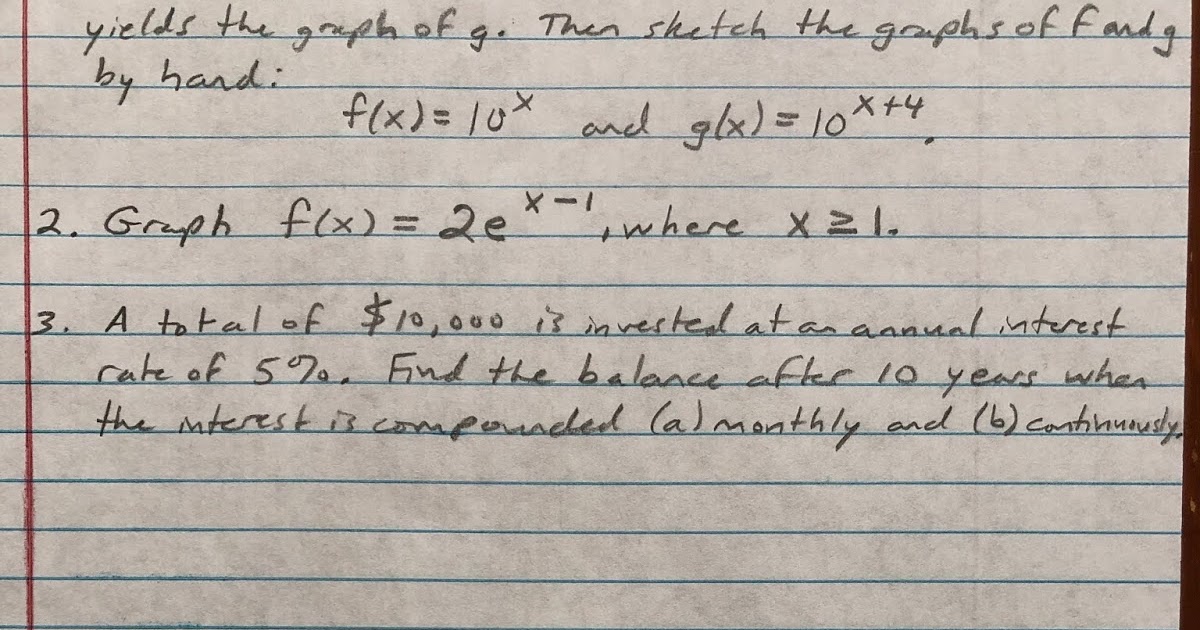 yields the graph of g. Then sketch the graphs of f and g
by hand:
f(x) = 10^x and g(x) = 10^x+4.
2. Graph f(x) = 2e^x-1, where x ≥ 1.
3. A total of $10,000 is invested at an annual interest
rate of 5%. Find the balance after 10 years when
the interest is compounded (a) monthly and (b) continuously.